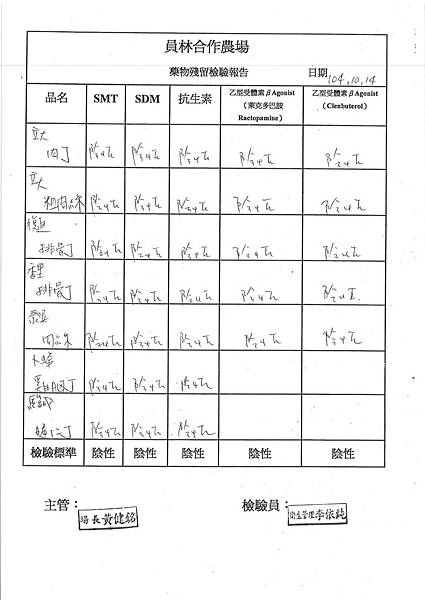 員林合作農場
藥物殘留檢驗報告 日期 104.10.14
品名 SMT SDM 抗生素 乙型受體素βAgonist（萊克多巴胺 Ractopamine） 乙型受體素βAgonist（Clenbuterol）
立大
肉丁 陰性 陰性 陰性 陰性 陰性
立大
粗肉絲 陰性 陰性 陰性 陰性 陰性
排骨丁 陰性 陰性 陰性 陰性 陰性
排骨丁 陰性 陰性 陰性 陰性 陰性
肉絲 陰性 陰性 陰性 陰性 陰性
卜蜂
雞胸丁 陰性 陰性 陰性
陰性 陰性 陰性
檢驗標準 陰性 陰性 陰性 陰性 陰性
主管： 檢驗員：
場長黃健銘 衛生管理李依純